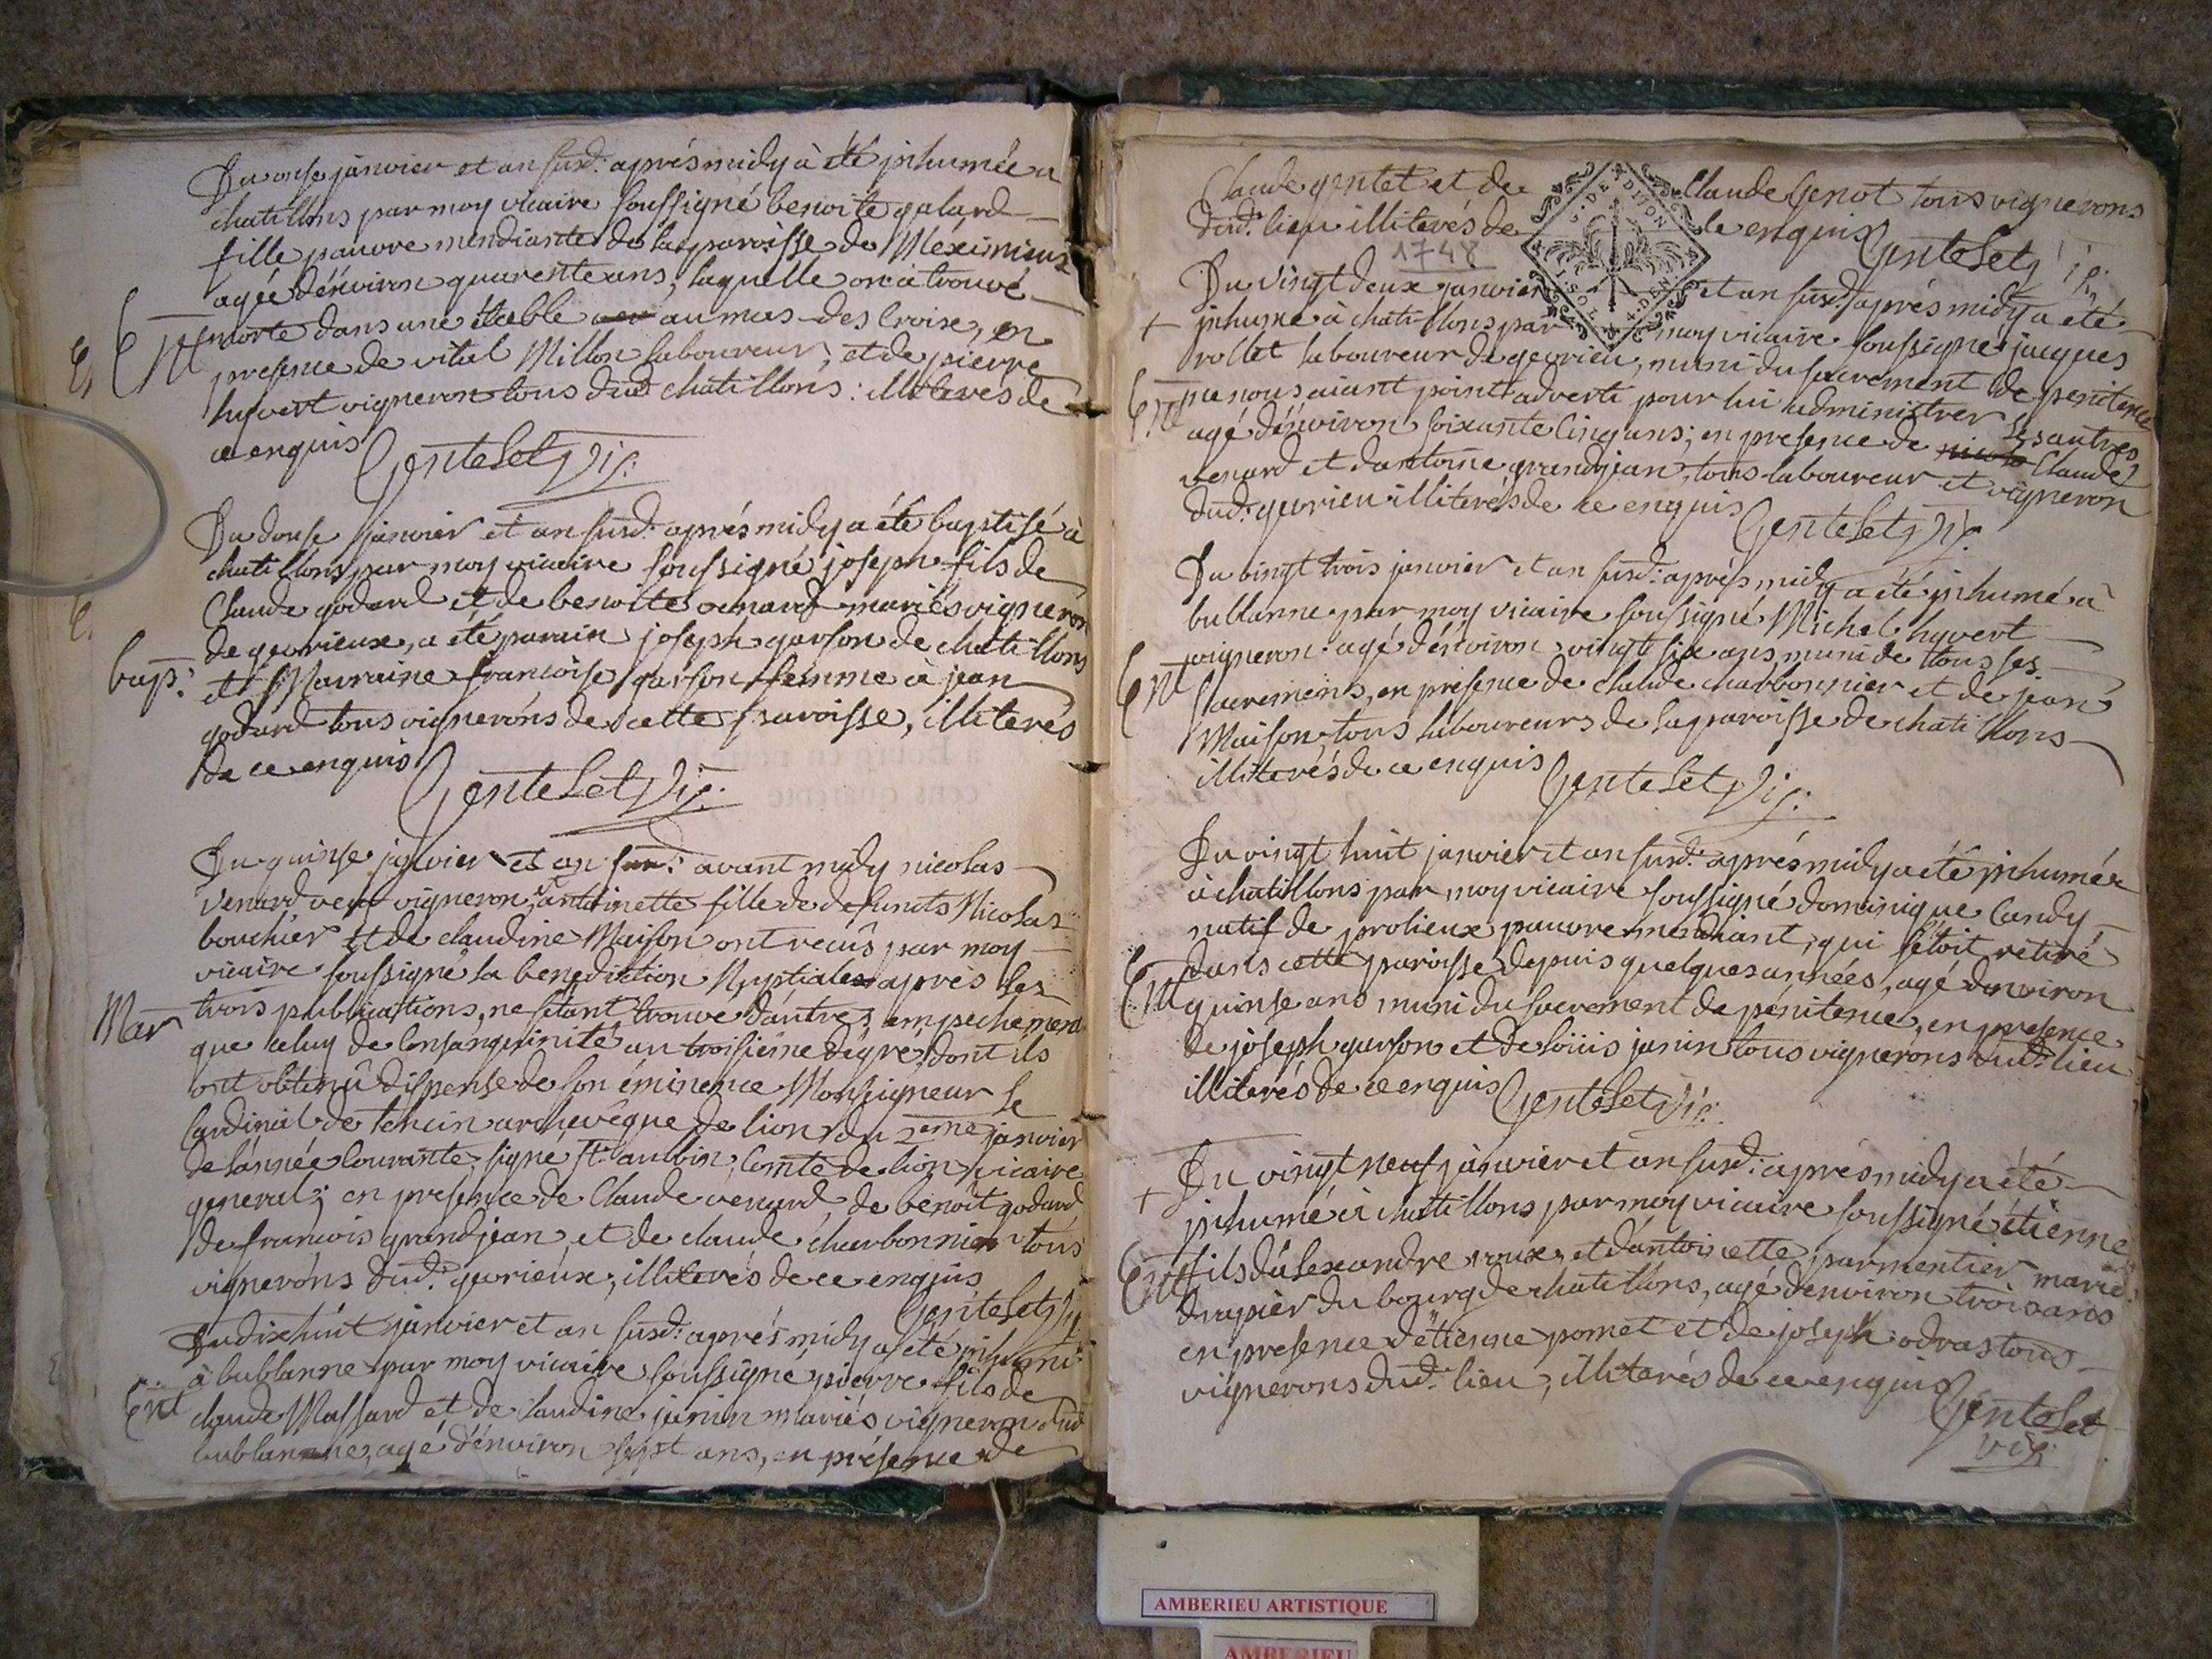 Du onse janvier et an susd: aprés midy à été inhumée a
chatillons par moy vicaire soussigné benoite galard
fille pauvre mendiante de la paroisse de Meximieux
agée dénviron quarente ans, laquelle on a trouvé
Ent morte dans une étable au mas des Croise, en
presence de vital Millon laboureur, et de pierre
huvert vigneron tous dud chatillons: illiterés de
ce enquis Gentelet Vic:
Du douse janvier et an susd: aprés midy a été baptisé à
chatillons par moy vicaire soussigné joseph fils de
Claude godard et de benoite venard mariés vigneron
de gevrieux, a été parain joseph garson de chatillons
bap: et Marraine francoise garson femme à jean
godard tous vignerons de cette paroisse, illiterés
de ce enquis Gentelet Vic:
Du quinse janvier et an sus: avant midy nicolas
venard veuf vigneron, et antoinette fille de defunts Nicolas
bouchier et de claudine Maison ont recûs par moy
vicaire soussigné la benediction Nuptiale aprés les
Mar trois publications, ne sétant trouvé dautres empechement
que celuy de Consanguinité au troisieme dégré, dont ils
ont obtenû dispense de son éminence Monseigneur le
Cardinal de tencin archevêque de lion du 2eme janvier
de lánnée Courante, signé st: aubin, Comte de lion vicaire
general; en présence de Claude venard, de benoit godard
de francois grandjean, et de claude charbonnier tous
vignerons dud: gevrieux, illiterés de ce enquis
Gentelet Vic
Du dixhuit janvier et an susd: aprés midy a été inhumé
à bublanne par moy vicaire soussigné pierre fils de
Ent claude Massard et de claudine janin mariés vigneron dud
bublanne, agé dénviron sept ans, en présence de
Claude gentet et de Claude Genot tous vignerons
dud: lieu illiterés de ce enquis Gentelet vic:
1748
G. DE DITION
Du vingt deux janvier et an susd: aprés midy a été
+ inhumé à chatillons par moy vicaire soussigné jacques
rollet laboureur de gevrieu, muni du sacrement de penitence
Ent ne nous aiant point adverti pour lui administrer les autres
agé dénviron soixante Cinq ans; en presence de Claude
venard et dantoine grandjean, tous laboureur et vigneron
dud: gevrieu illiterés de ce enquis Gentelet Vic:
Du vingt trois janvier et an susd: aprés midy a été inhumé à
bublanne par moy vicaire soussigné Michel huvert
vigneron agé dénviron vingt six ans, muni de tous ses
Ent sacremens, en présence de claude charbonnier et de jean
Maison, tous laboureurs de la paroisse de chatillons
illiterés de ce enquis Gentelet Vic:
Du vingt huit janvier et an susd: aprés midy a été inhumé
à chatillons par moy vicaire soussigné dominique Candy
natif de prolieux pauvre mendiant, qui sétoit retiré
Ent dans cette paroisse depuis quelques années, agé denviron
quinse ans muni du sacrement de pénitence, en presence
de joseph garson et de loüis janin tous vignérons dud: lieu
illiterés de ce enquis Gentelet Vic:
Du vingt neuf janvier et an susd: aprés midy a été
+ inhumé à chatillons par moy vicaire soussigné étienne
Ent fils dálexandre roux et dántoinette parmentier mariés
drapier du bourg de chatillons, agé denviron trois ans
en presence détienne pomet et de joseph odras tous
vignerons dud: lieu, illiterés de ce enquis
Gentelet
vic:
AMBERIEU ARTISTIQUE
AMBERIEU